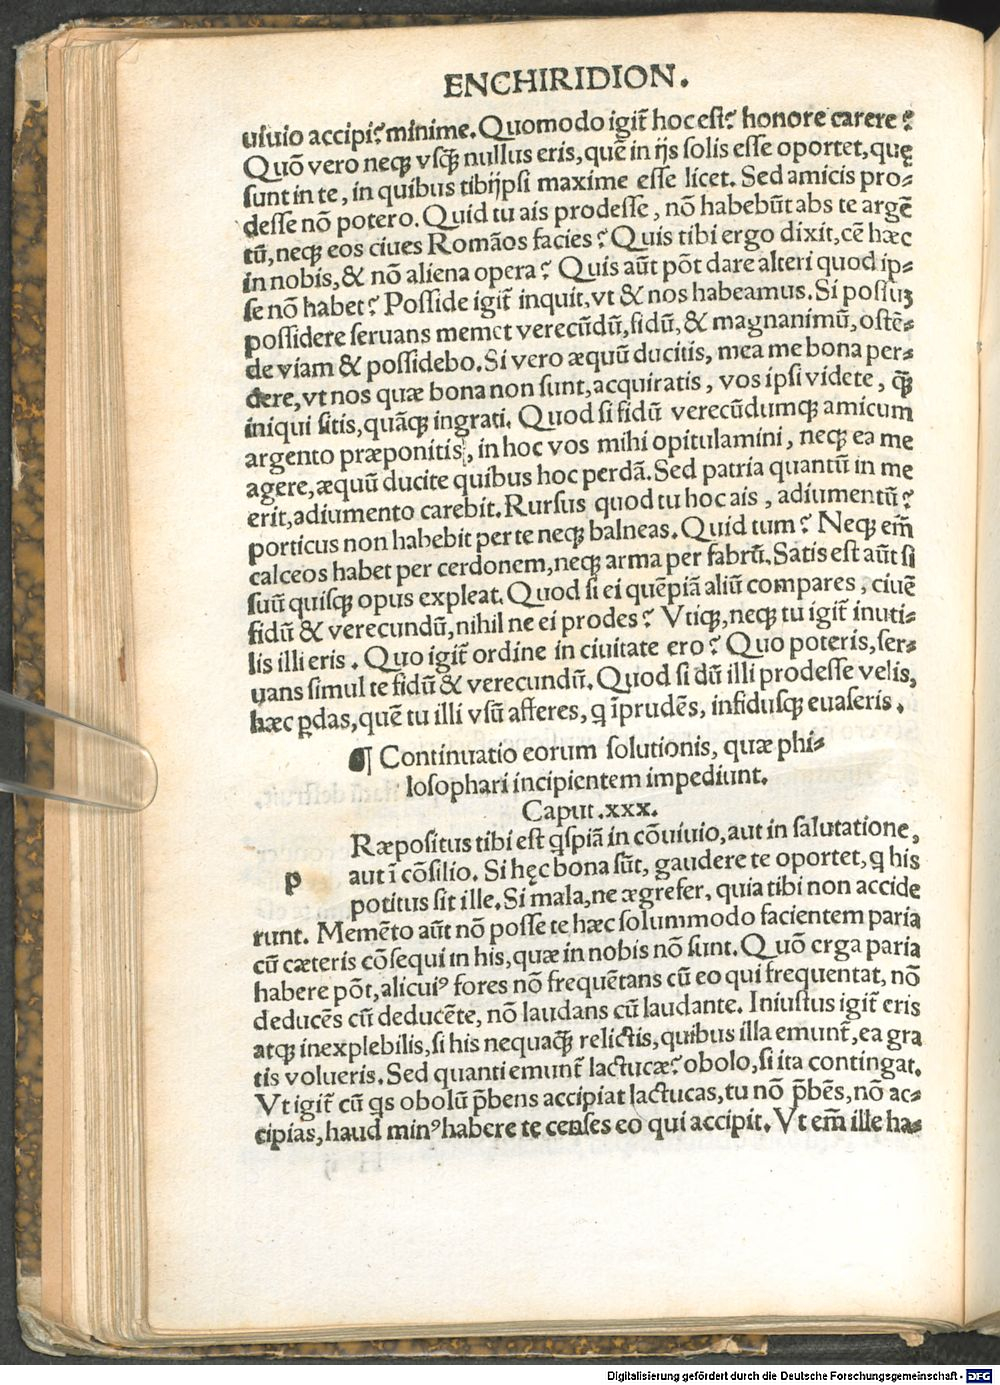 ENCHIRIDION.
uiuio accipi? minime. Quomodo igit̃ hoc est? honore carere?
Quõ vero neqꝫ vsqꝫ̃ nullus eris, quẽ in ijs solis esse oportet, quę
sunt in te, in quibus tibijpsi maxime esse licet. Sed amicis pro-
desse nõ potero. Quid tu ais prodesse, nõ habebũt abs te argẽ
tũ, neqꝫ eos ciues Romãos facies? Quis tibi ergo dixit, cẽ hæc
in nobis, & nõ aliena opera? Quis aũt põt dare alteri quod ip-
se nõ habet? Posside igit̃ inquit, vt & nos habeamus. Si possuꝫ
possidere seruans memet verecũdũ, fidũ, & magnanimũ, ostẽ-
de viam & possidebo. Si vero æquũ ducitis, mea me bona per-
dere, vt nos quæ bona non sunt, acquiratis, vos ipsi videte, qꝫ̃
iniqui sitis, quãqꝫ ingrati. Quod si fidũ verecũdumqꝫ amicum
argento præponitis, in hoc vos mihi opitulamini, neqꝫ ea me
agere, æquũ ducite quibus hoc perdã. Sed patria quantũ in me
erit, adiumento carebit. Rursus quod tu hoc ais, adiumentũ?
porticus non habebit per te neqꝫ balneas. Quid tum? Neqꝫ em̃
calceos habet per cerdonem, neqꝫ arma per fabrũ. Satis est aũt si
suũ quisqꝫ opus expleat. Quod si ei quẽpiã aliũ compares, ciuẽ
fidũ & verecundũ, nihil ne ei prodes? Vtiqꝫ, neqꝫ tu igit̃ inuti-
lis illi eris. Quo igit̃ ordine in ciuitate ero? Quo poteris, ser-
uans simul te fidũ & verecundũ. Quod si dũ illi prodesse velis,
hæc ꝑdas, quẽ tu illi vsũ afferes, ꝗ ĩprudẽs, infidusqꝫ euaseris.
¶ Continuatio eorum solutionis, quæ phi-
losophari incipientem impediunt.
Caput .xxx.
p Ræpositus tibi est ꝗspiã in cõuiuio, aut in salutatione,
aut ĩ cõsilio. Si hęc bona sũt, gaudere te oportet, ꝗ his
potitus sit ille. Si mala, ne ægrefer, quia tibi non accide
runt. Memẽto aũt nõ posse te hæc solummodo facientem paria
cũ cæteris cõsequi in his, quæ in nobis nõ sunt. Quõ erga paria
habere põt, alicuiꝰ fores nõ frequẽtans cũ eo qui frequentat, nõ
deducẽs cũ deducẽte, nõ laudans cũ laudante. Iniustus igit̃ eris
atqꝫ inexplebilis, si his nequaqꝫ̃ relictis, quibus illa emunt̃, ea gra
tis volueris. Sed quanti emunt̃ lactucæ? obolo, si ita contingat.
Vt igit̃ cũ ꝗs obolũ p̃bens accipiat lactucas, tu nõ p̃bẽs, nõ ac-
cipias, haud minꝰ habere te censes eo qui accipit. Vt em̃ ille ha-
Digitalisierung gefördert durch die Deutsche Forschungsgemeinschaft - DFG